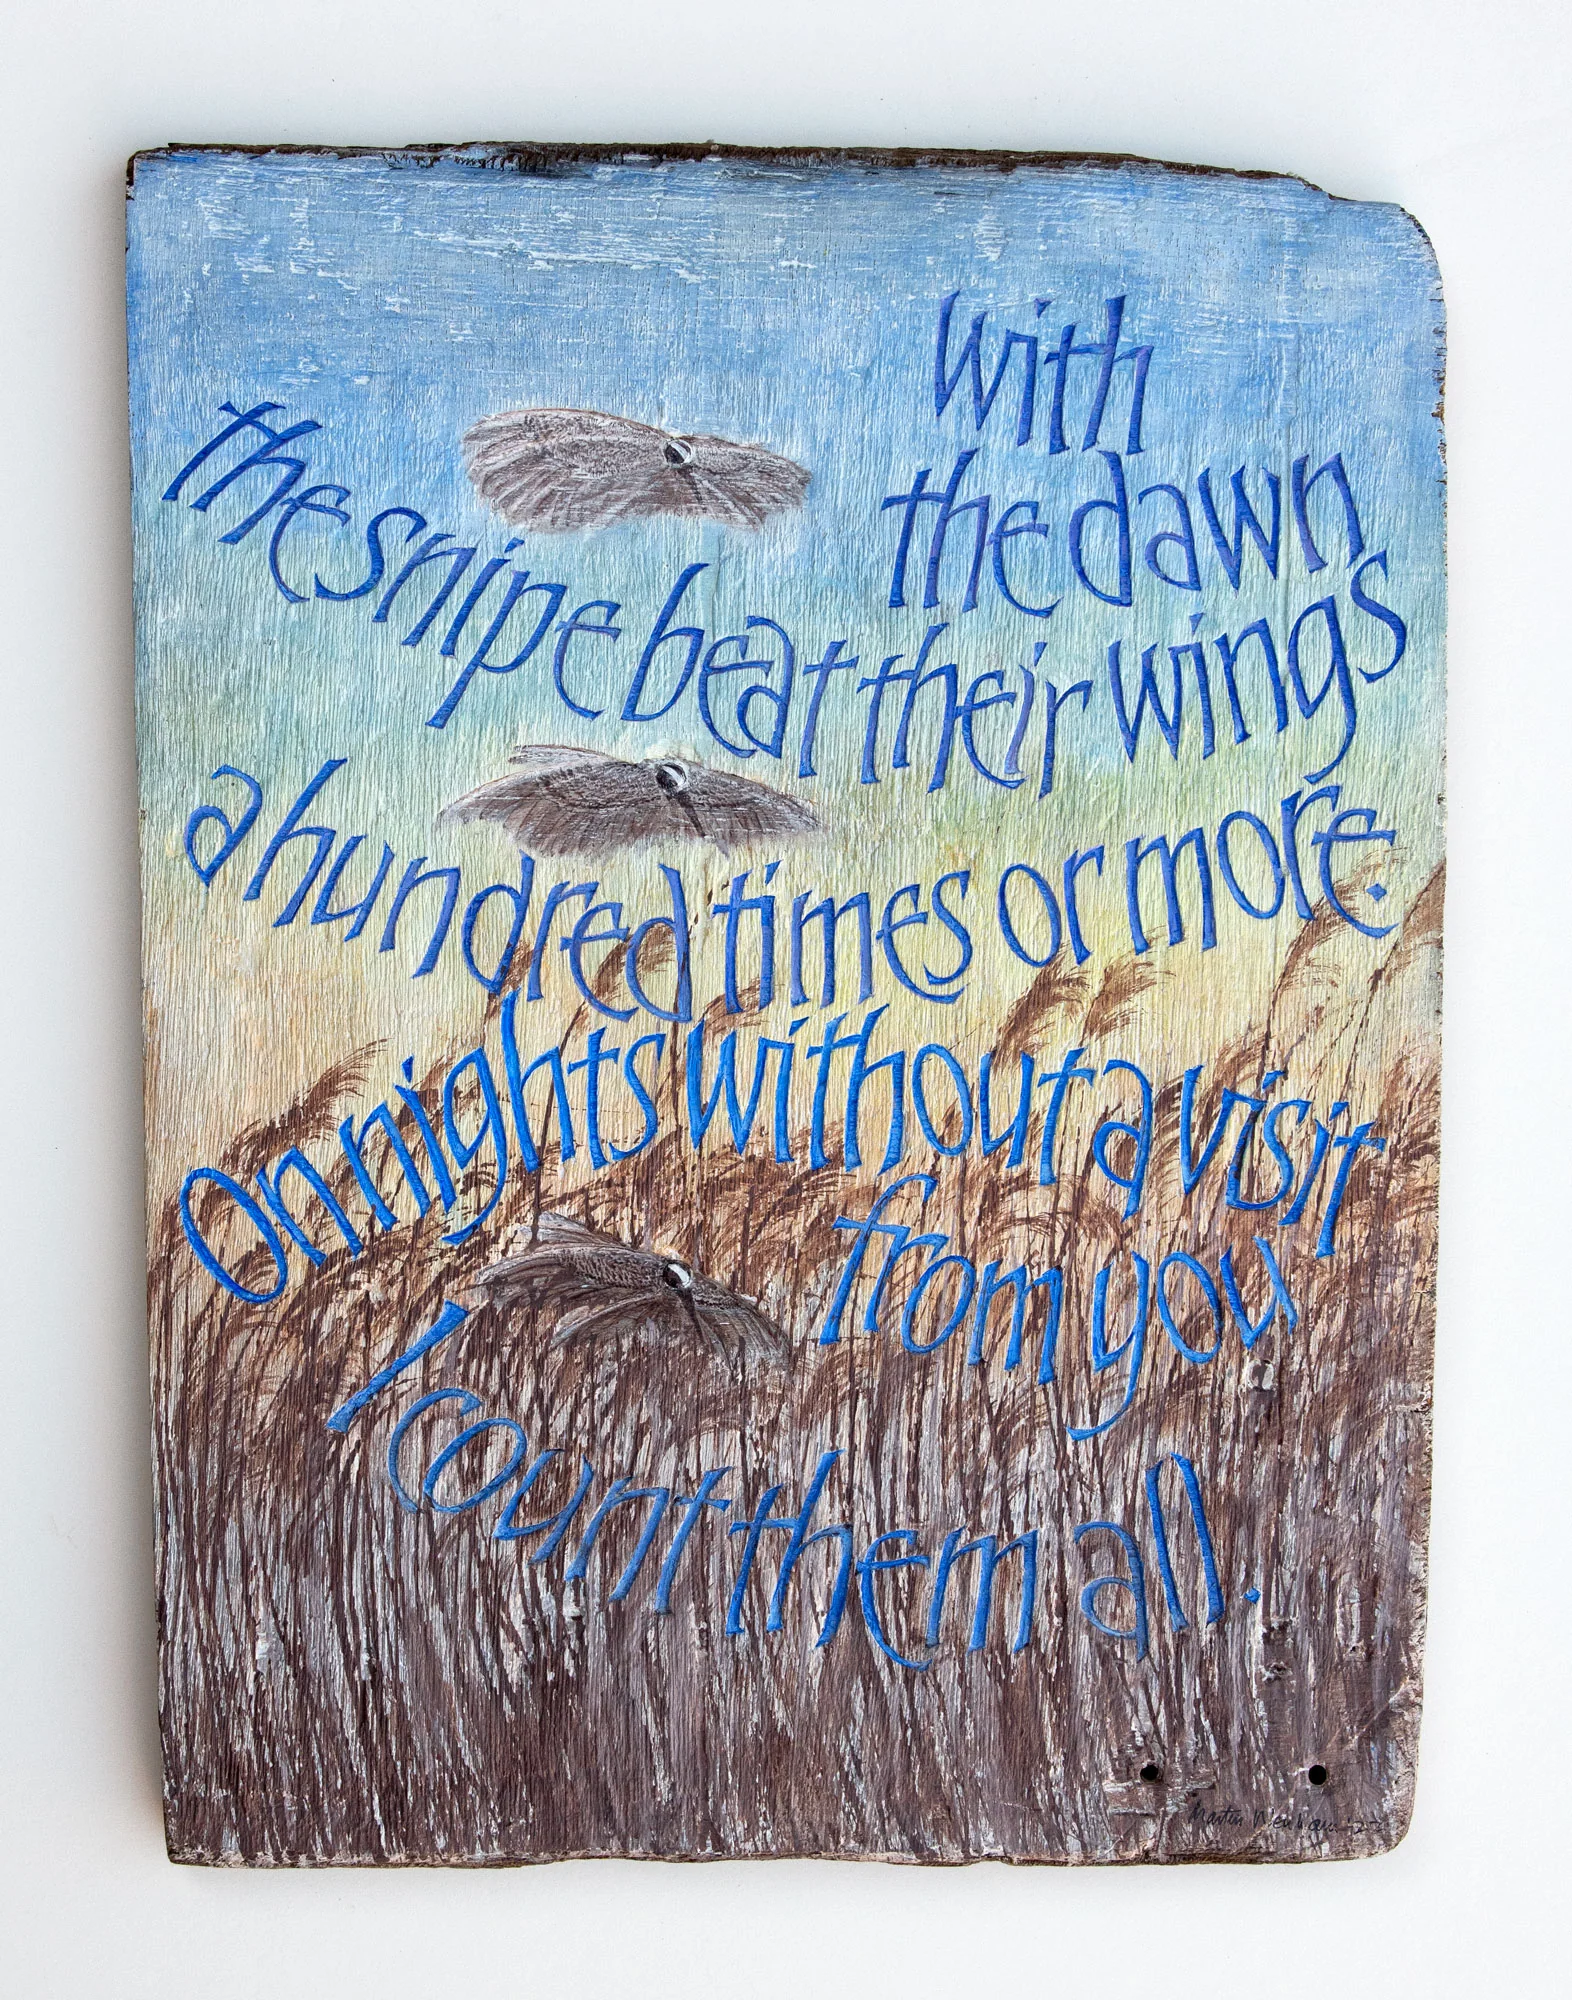 with
the dawn
the snipe beat their wings
a hundred times or more.
On nights without a visit
from you
I count them all.
Martin Wenham